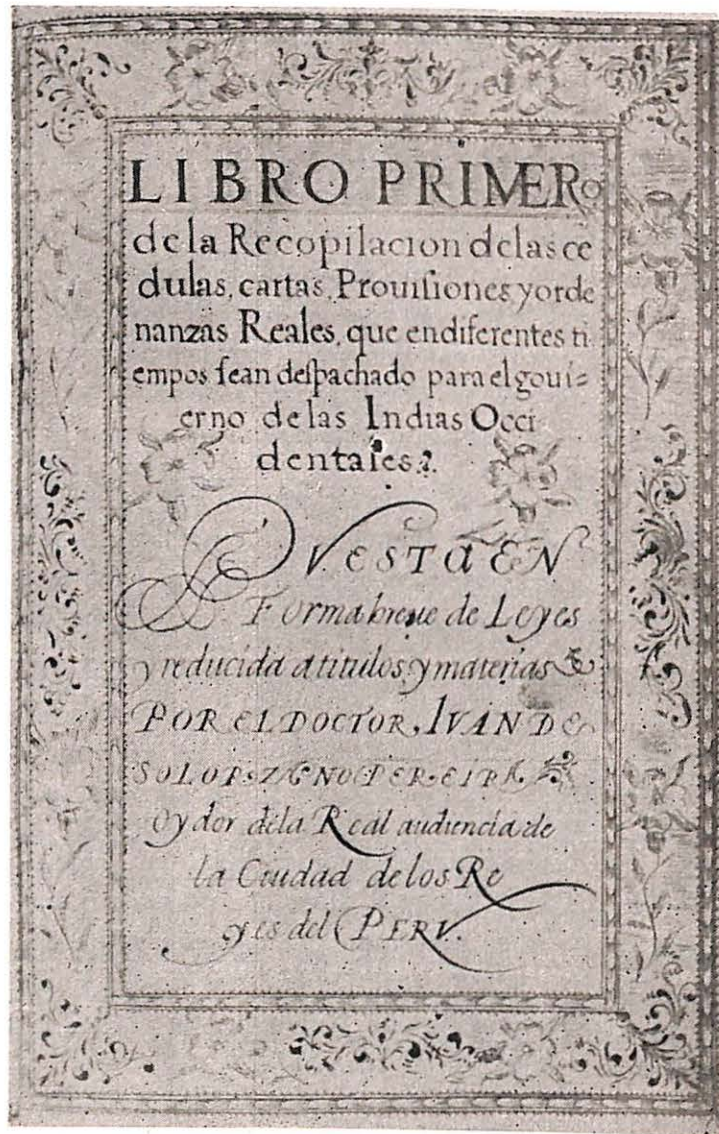 LIBRO PRIMERo
de la Recopilacion delas ce
dulas, cartas, Prouisiones yorde
nanzas Reales, que endiferentes ti
empos sean despachado para el goui=
erno de las Indias Occi
dentales.
QVESTA EN
Forma breue de Leyes
y reducida atitulos, y materias
POR EL DOCTOR, IVAN DE
SOLORZANO PEREIRA
Oydor dela Real audiencia de
la Ciudad de los Re
yes del PERV.